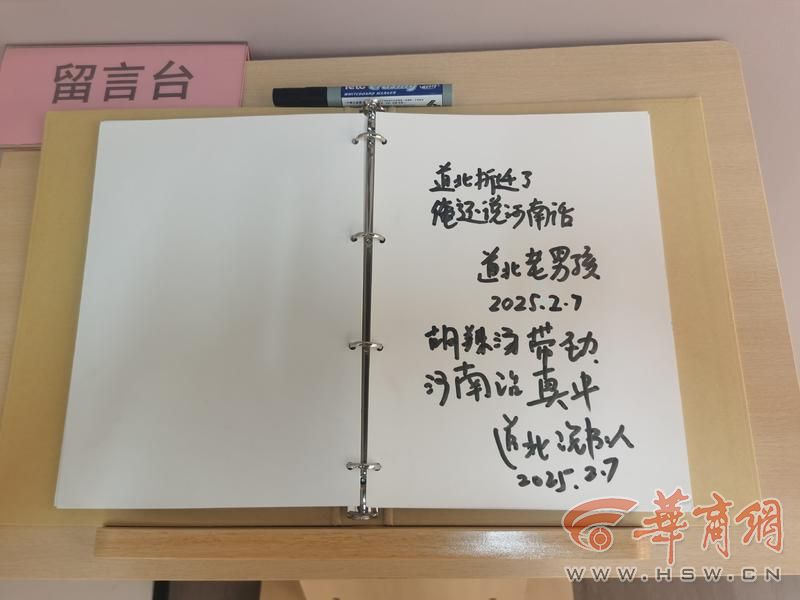 留言台
WHITEBOARD MARKER
道北拆迁了
俺还说河南话
道北老男孩
2025.2.7
胡辣汤带劲
河南话真中
道北说书人
2025.2.7
華商網
WWW.HSW.CN